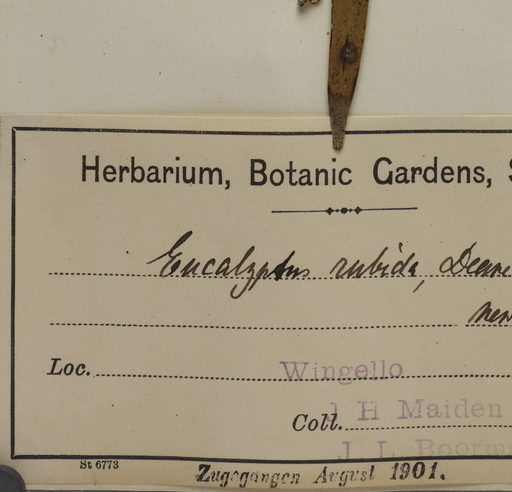 Herbarium, Botanic Gardens, S
Eucalyptus rubida, Deane
new
Loc. Wingello
Coll. J H Maiden
J. L. Boorm
St 6773
Zugegangen August 1901.